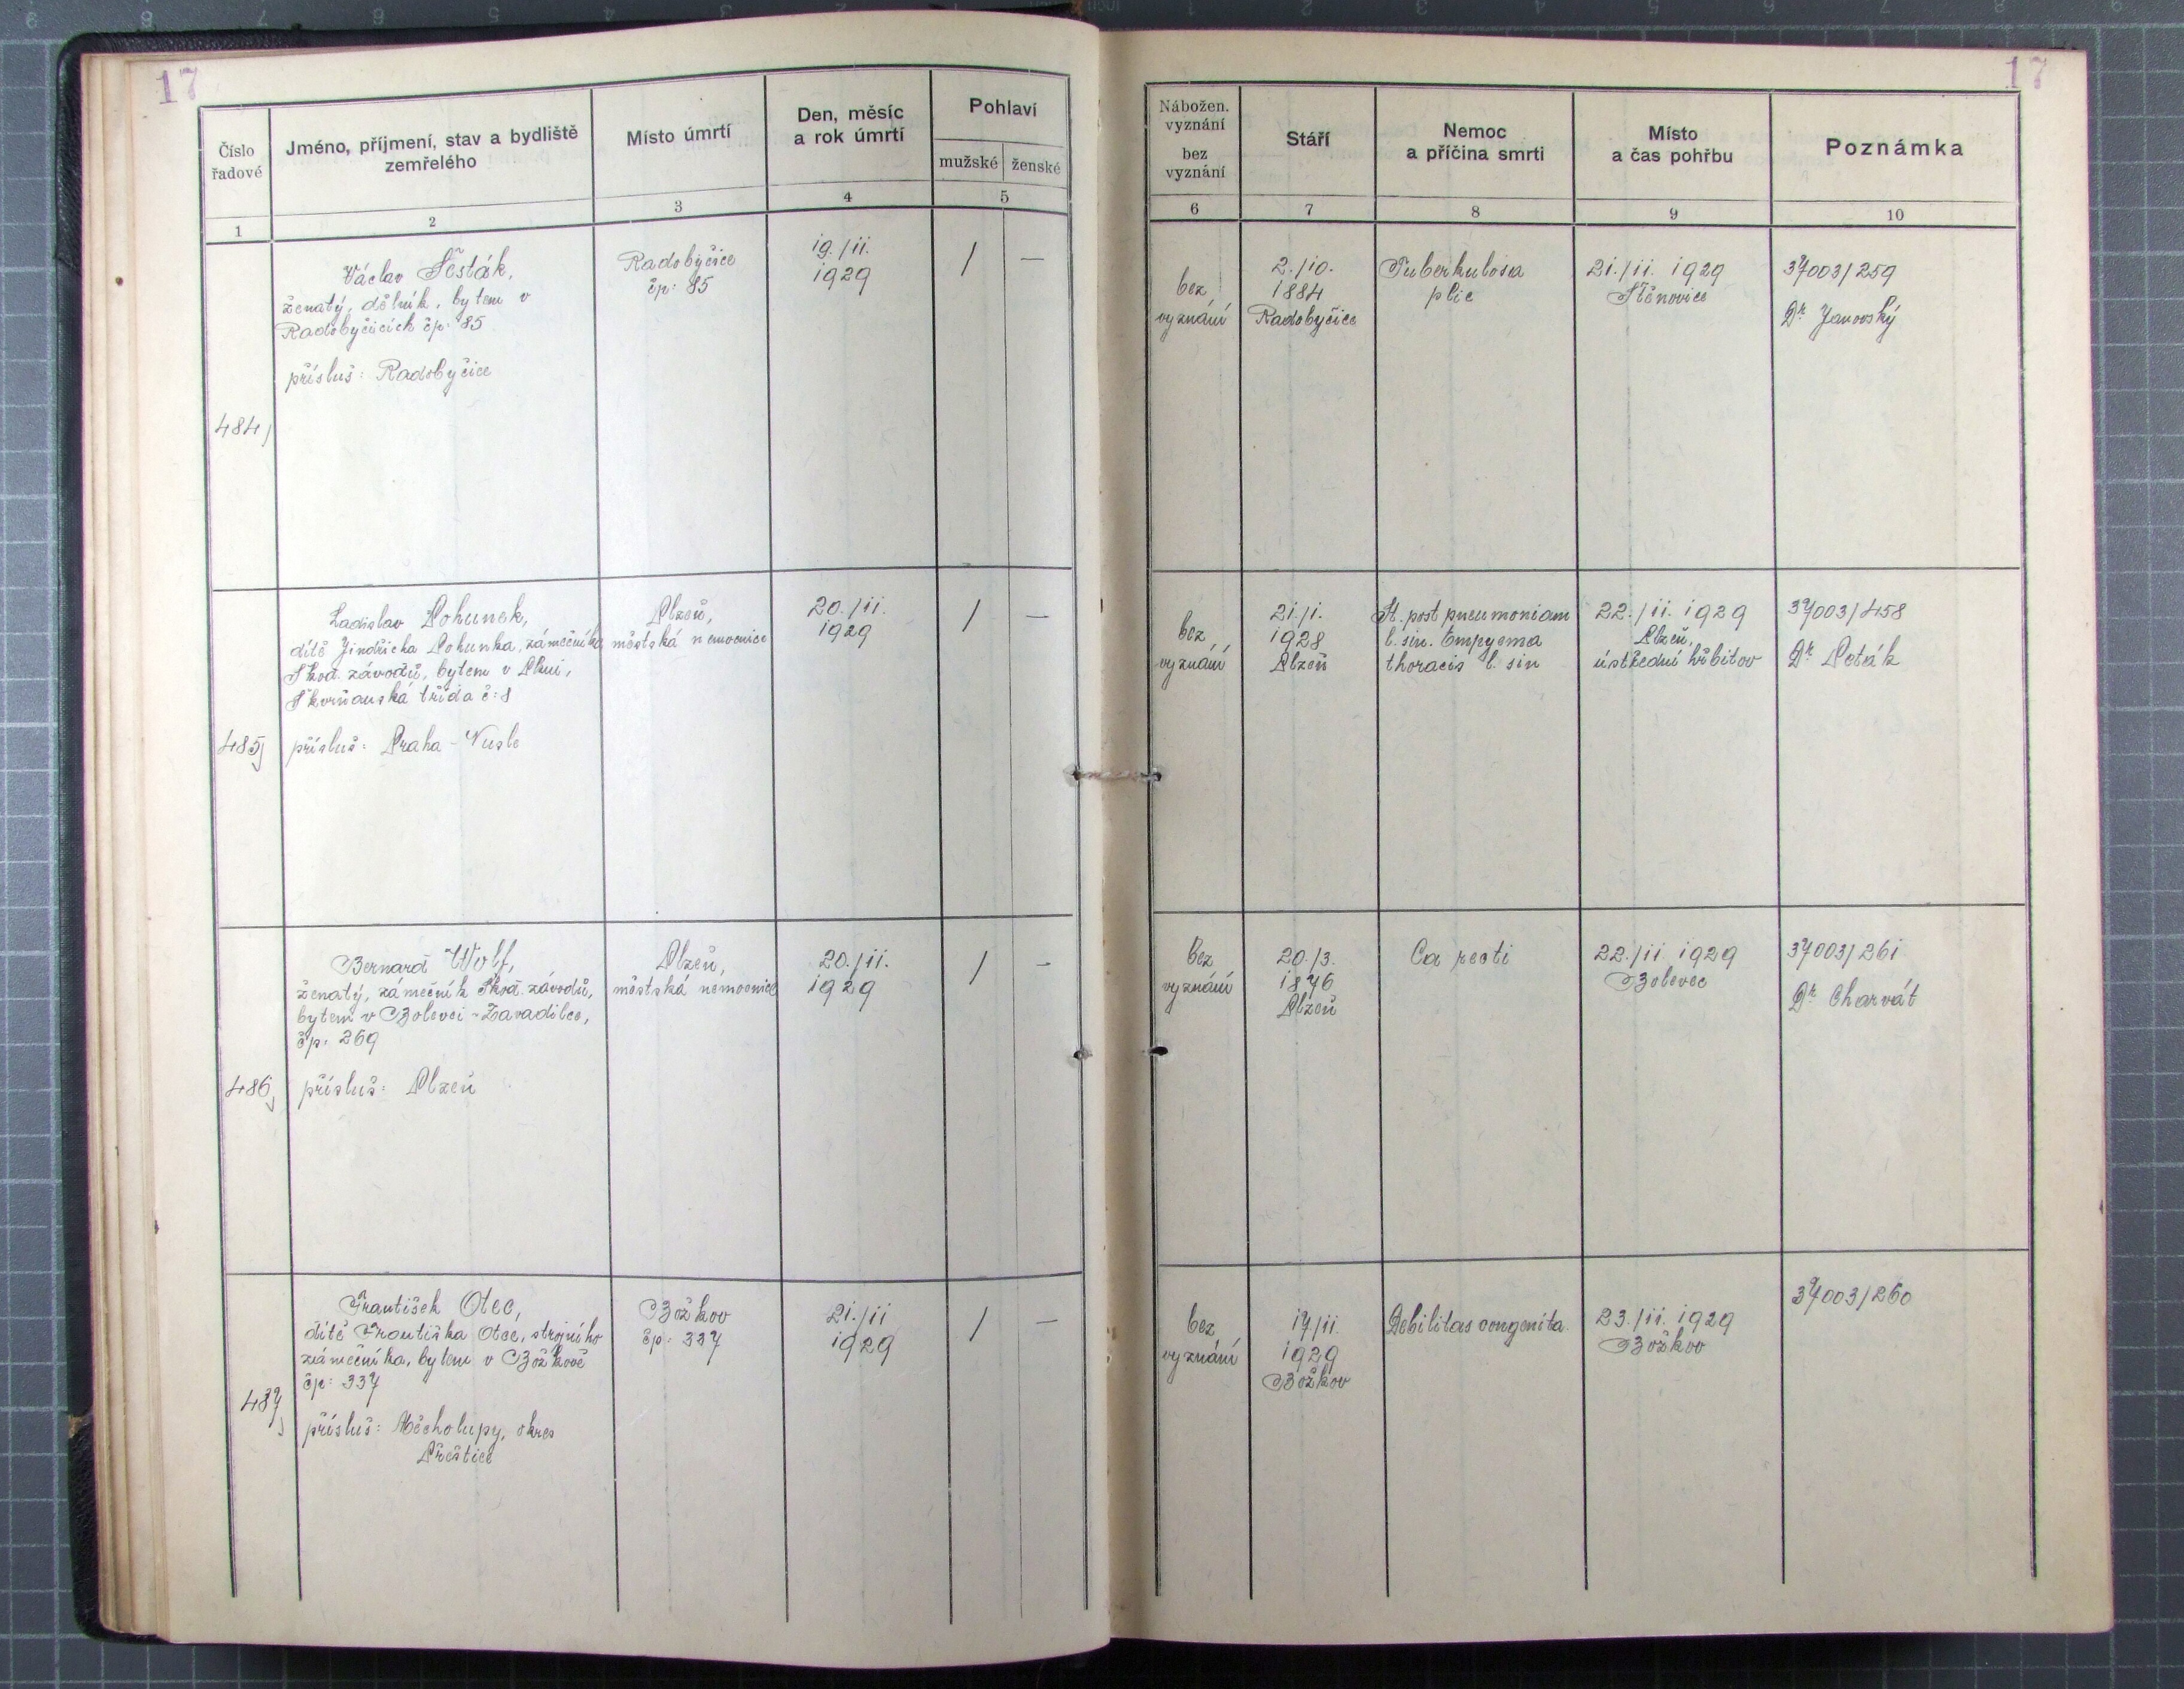 17
17
Číslo
řadové
Jméno, příjmení, stav a bydliště
zemřelého
Místo úmrtí
Den, měsíc
a rok úmrtí
Pohlaví
mužské
ženské
Nábožen.
vyznání
bez
vyznání
Stáří
Nemoc
a příčina smrti
Místo
a čas pohřbu
Poznámka
1
2
3
4
5
6
7
8
9
10
484)
Václav Šesták,
ženatý, dělník, bytem v
Radobyčicích čp: 85
přísluš: Radobyčice
Radobyčice
čp: 85
19./11.
1929
/
—
bez
vyznání
2./10.
1884
Radobyčice
Tuberkulosa
plic
21./11. 1929
Štěnovice
37003/259
Dr Janovský
485)
Ladislav Pohunek,
dítě Jindřicha Pohunka, zámečníka
Škod. závodů, bytem v Plzni,
Skvrňanská třída č: 8
přísluš: Praha - Nusle
Plzeň,
městská nemocnice
20./11.
1929
/
—
bez
vyznání
21./1.
1928
Plzeň
St. post pneumoniam
l. sin. Empyema
thoracis l. sin
22./11. 1929
Plzeň,
ústřední hřbitov
37003/458
Dr Poták
486)
Bernard Wolf,
ženatý, zámečník Škod. závodů,
bytem v Bolevci - Zavadilce,
čp: 269
přísluš: Plzeň
Plzeň,
městská nemocnice
20./11.
1929
/
—
bez
vyznání
20./3.
1876
Plzeň
Ca recti
22./11. 1929
Bolevec
37003/261
Dr Charvát
487)
František Otec,
dítě Františka Otce, strojního
zámečníka, bytem v Božkově
čp: 337
přísluš: Měcholupy, okres
Přeštice
Božkov
čp: 337
21./11
1929
/
—
bez
vyznání
17/11.
1929
Božkov
Debilitas congenita.
23./11. 1929
Božkov
37003/260